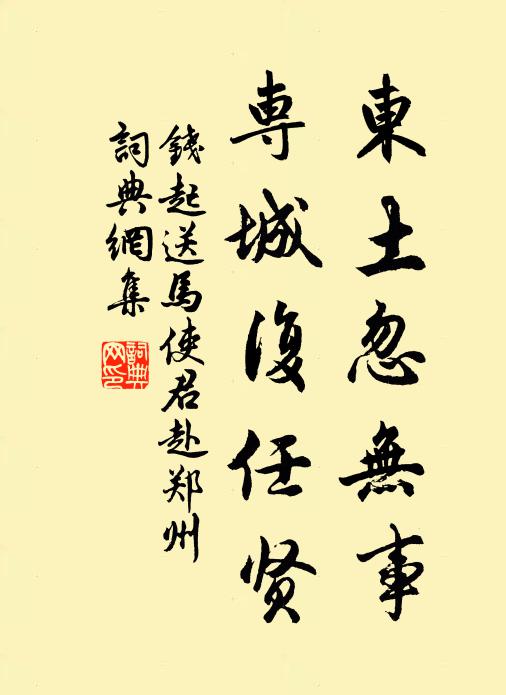 東土忽無事
専城復任贤
錢起送馬使君赴郑州
詞典網集
詞典网印